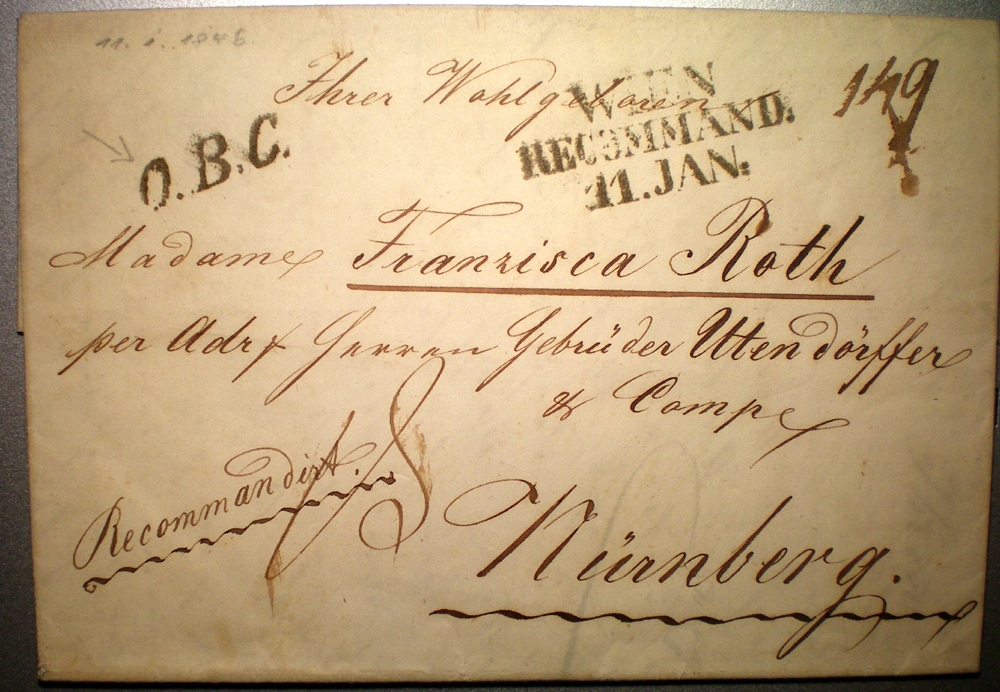 11. i. 1846.
Ihrer Wohlgeboren
149
WIEN
RECOMMAND.
11. JAN.
O.B.C.
Madame Franzisca Roth
per Adr Herren Gebrüder Utendörffer
& Comp
Recommandirt.
18
Nürnberg.